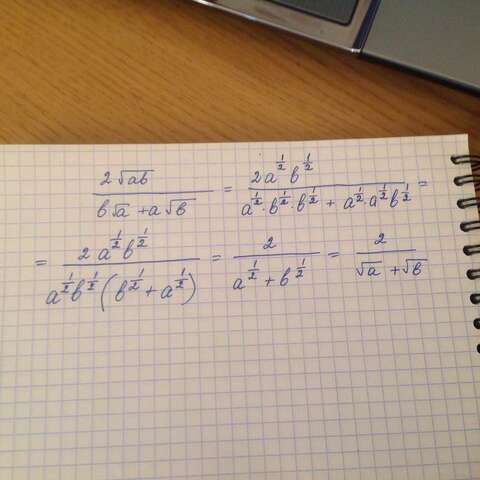 2√ab / (b√a + a√b) = 2a^(1/2) b^(1/2) / (a^(1/2) · b^(1/2) · b^(1/2) + a^(1/2) · a^(1/2) b^(1/2)) =
= 2 a^(1/2) b^(1/2) / (a^(1/2) b^(1/2) (b^(1/2) + a^(1/2))) = 2 / (a^(1/2) + b^(1/2)) = 2 / (√a + √b)